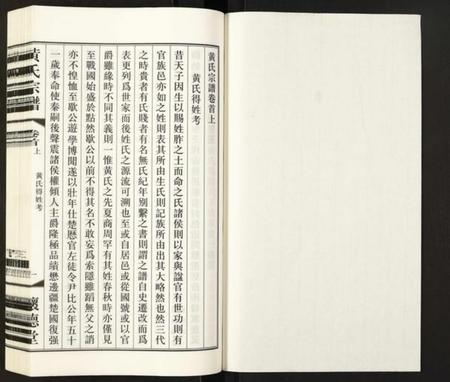 黃氏宗譜卷首上
黃氏得姓考
昔天子因生以賜姓胙之土而命之氏諸侯則以家與諡官有世功則有
官族邑亦如之姓則表其所由生氏則記族所由出其大略然也然三代
之時貴者有氏賤者有名無氏紀年別繫之書則謂之譜自史遷改而爲
表更列爲世家而後姓氏之源流可溯也至或自居邑或從國號或以官
爵雖緣時不同其義則一惟黃氏之先夏商周罕有其姓春秋時亦僅見
至戰國始盛於點然歇公以前不得其名不敢妄爲索隱雖蹈無父之誚
亦不惶恤至歇公遊學博聞遂以壯年仕楚懋官左徒令尹比公年五十
一歲奉命使秦嗣後聲震諸侯權傾人主爵隆極品績懋邊疆楚國復强
黃氏宗譜
卷首上
黃氏得姓考
一
懷德堂